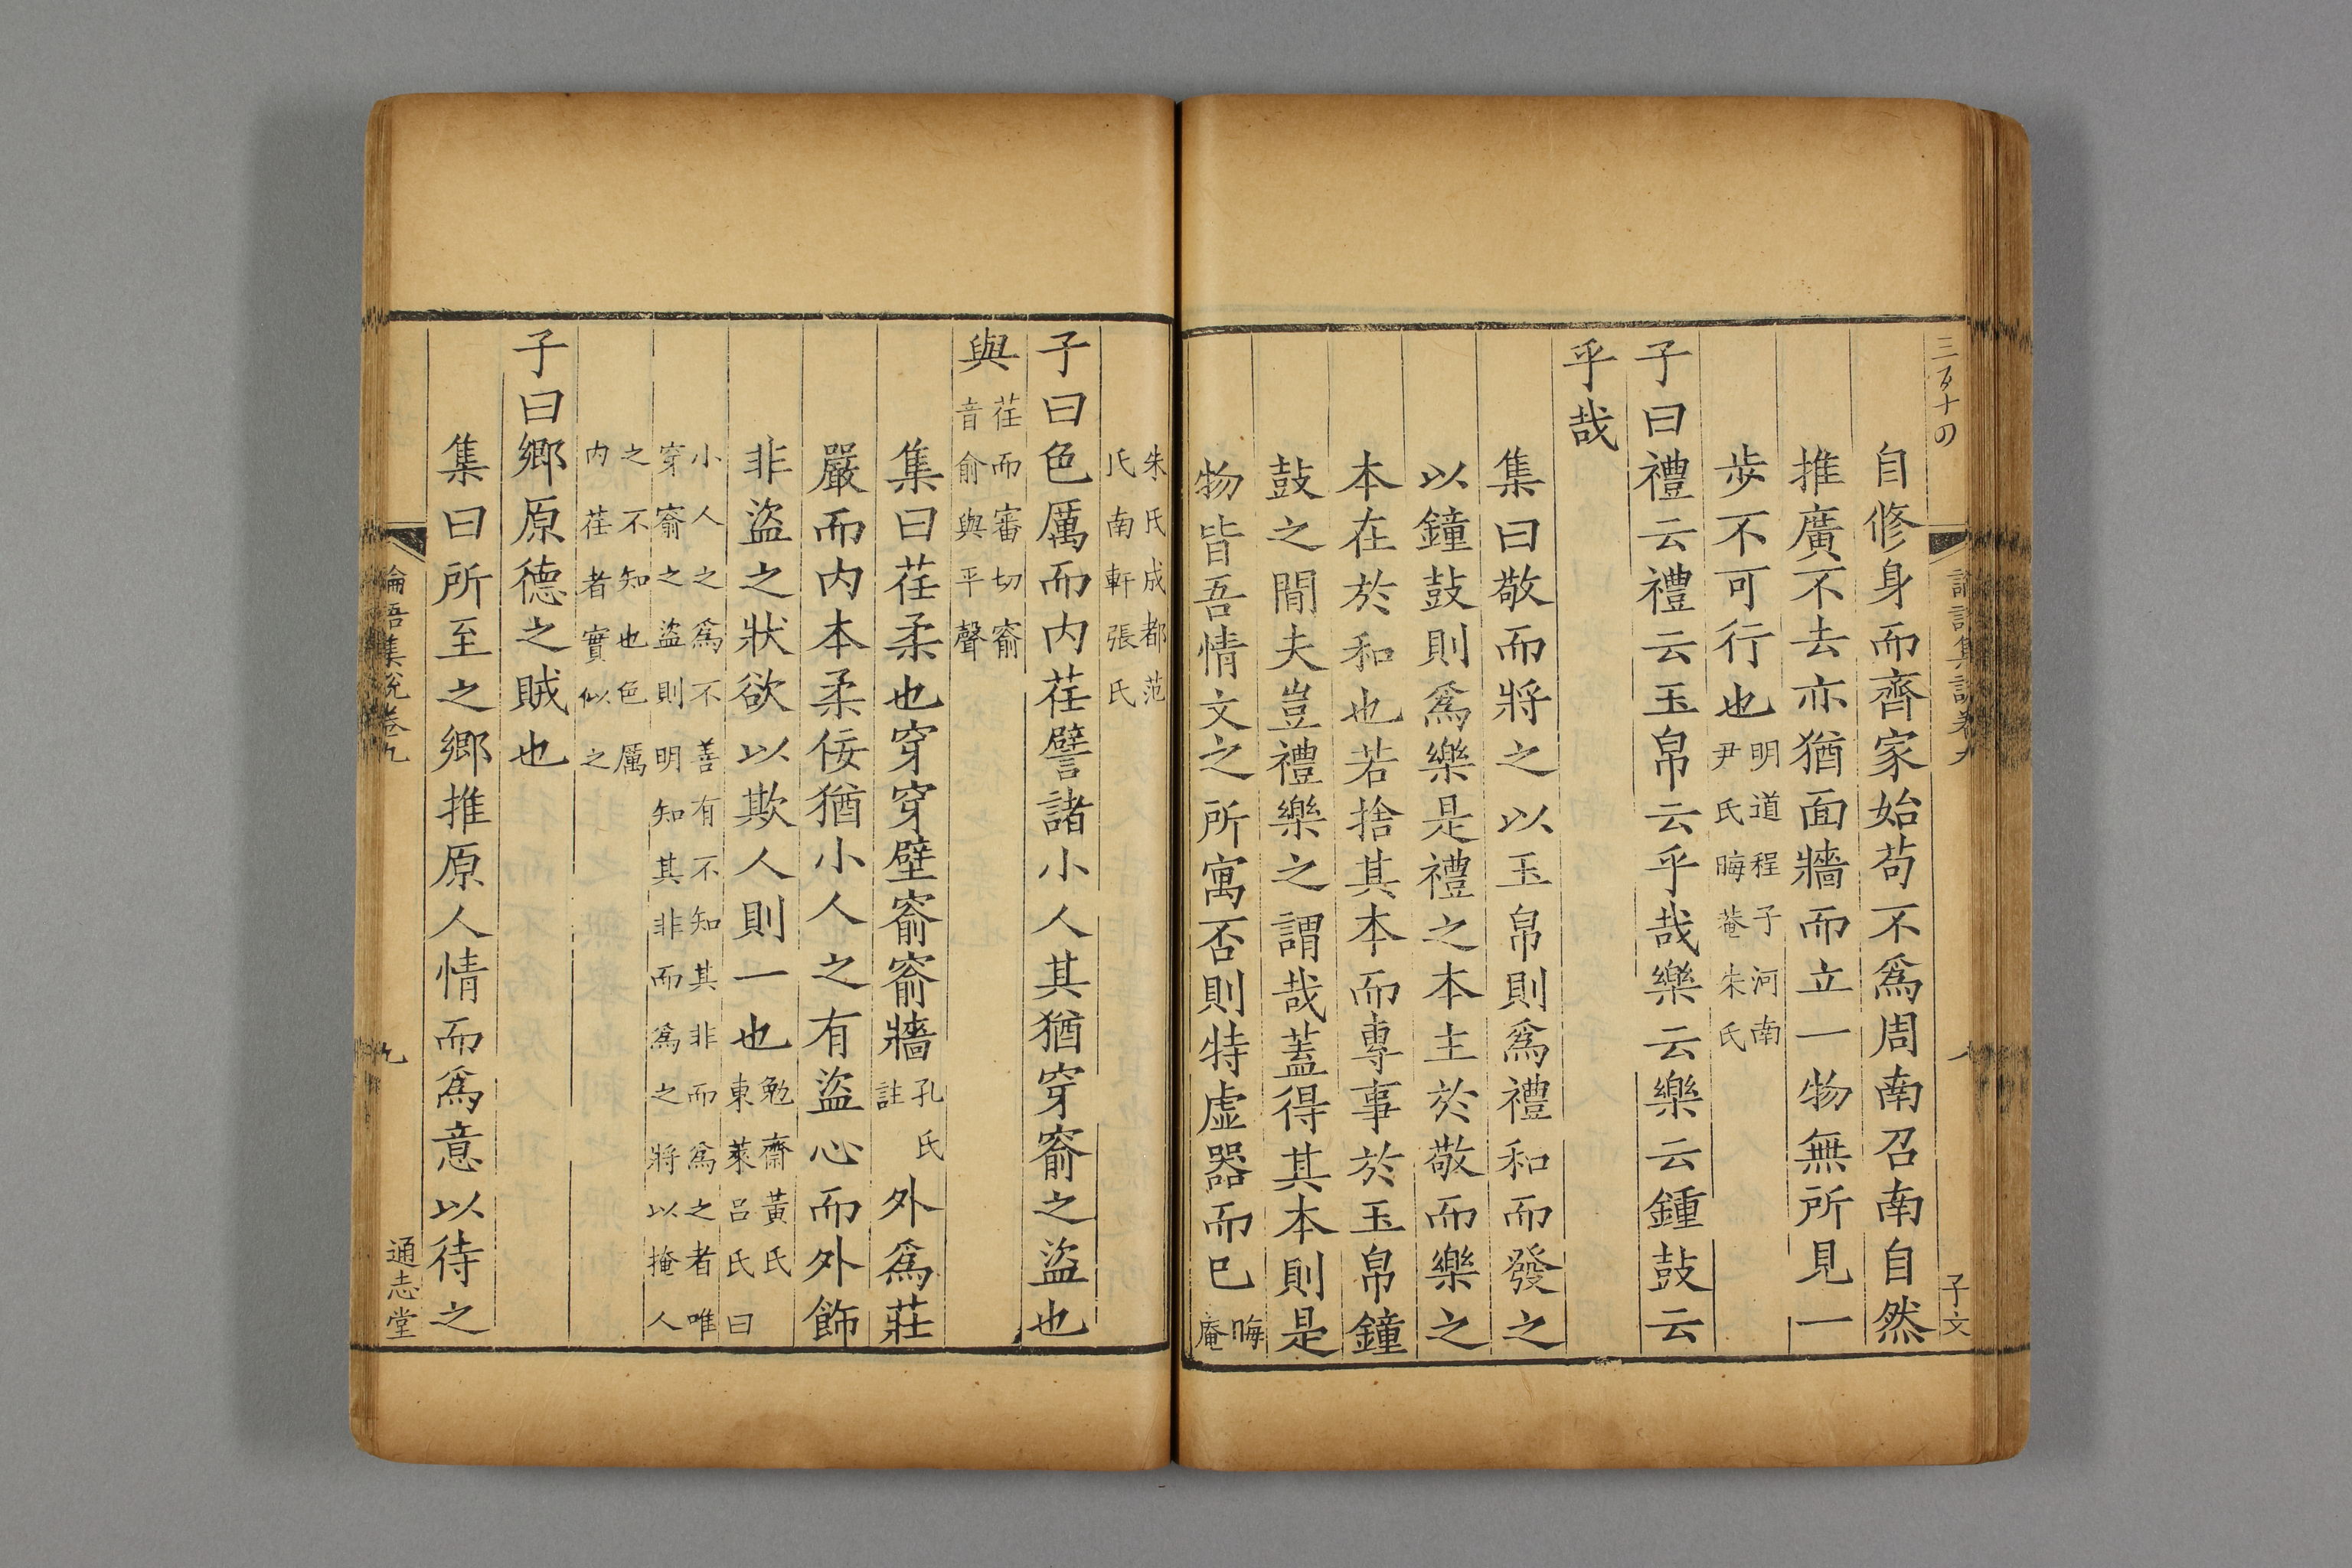 三百十四
論語集說卷九
八
子文
自修身而齊家始苟不爲周南召南自然
推廣不去亦猶面牆而立一物無所見一
步不可行也明道程子河南尹氏晦菴朱氏
子曰禮云禮云玉帛云乎哉樂云樂云鍾鼓云
乎哉
集曰敬而將之以玉帛則爲禮和而發之
以鐘鼓則爲樂是禮之本主於敬而樂之
本在於和也若捨其本而專事於玉帛鐘
鼓之間夫豈禮樂之謂哉蓋得其本則是
物皆吾情文之所寓否則特虚器而已晦庵
朱氏成都范氏南軒張氏
子曰色厲而内荏譬諸小人其猶穿窬之盜也
與荏而審切窬音俞與平聲
集曰荏柔也穿穿壁窬窬牆孔氏註外爲莊
嚴而内本柔佞猶小人之有盜心而外飾
非盜之狀欲以欺人則一也勉齋黃氏東萊呂氏曰
小人之爲不善有不知其非而爲之者唯穿窬之盜則明知其非而爲之將以掩人
之不知也色厲内荏者實似之
子曰鄉原德之賊也
集曰所至之鄉推原人情而爲意以待之
論語集說卷九
九
通志堂